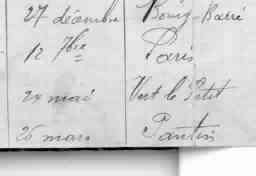 27 décembre Bourg-Barré
12 7bre Paris
24 mai Vert le Petit
26 mars Pantin